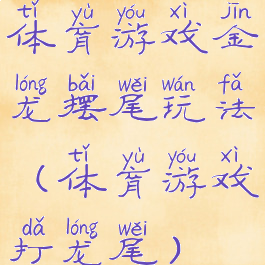 tǐ yù yóu xì jīn
体育游戏金
lóng bǎi wěi wán fǎ
龙摆尾玩法
tǐ yù yóu xì
(体育游戏
dǎ lóng wěi
打龙尾)